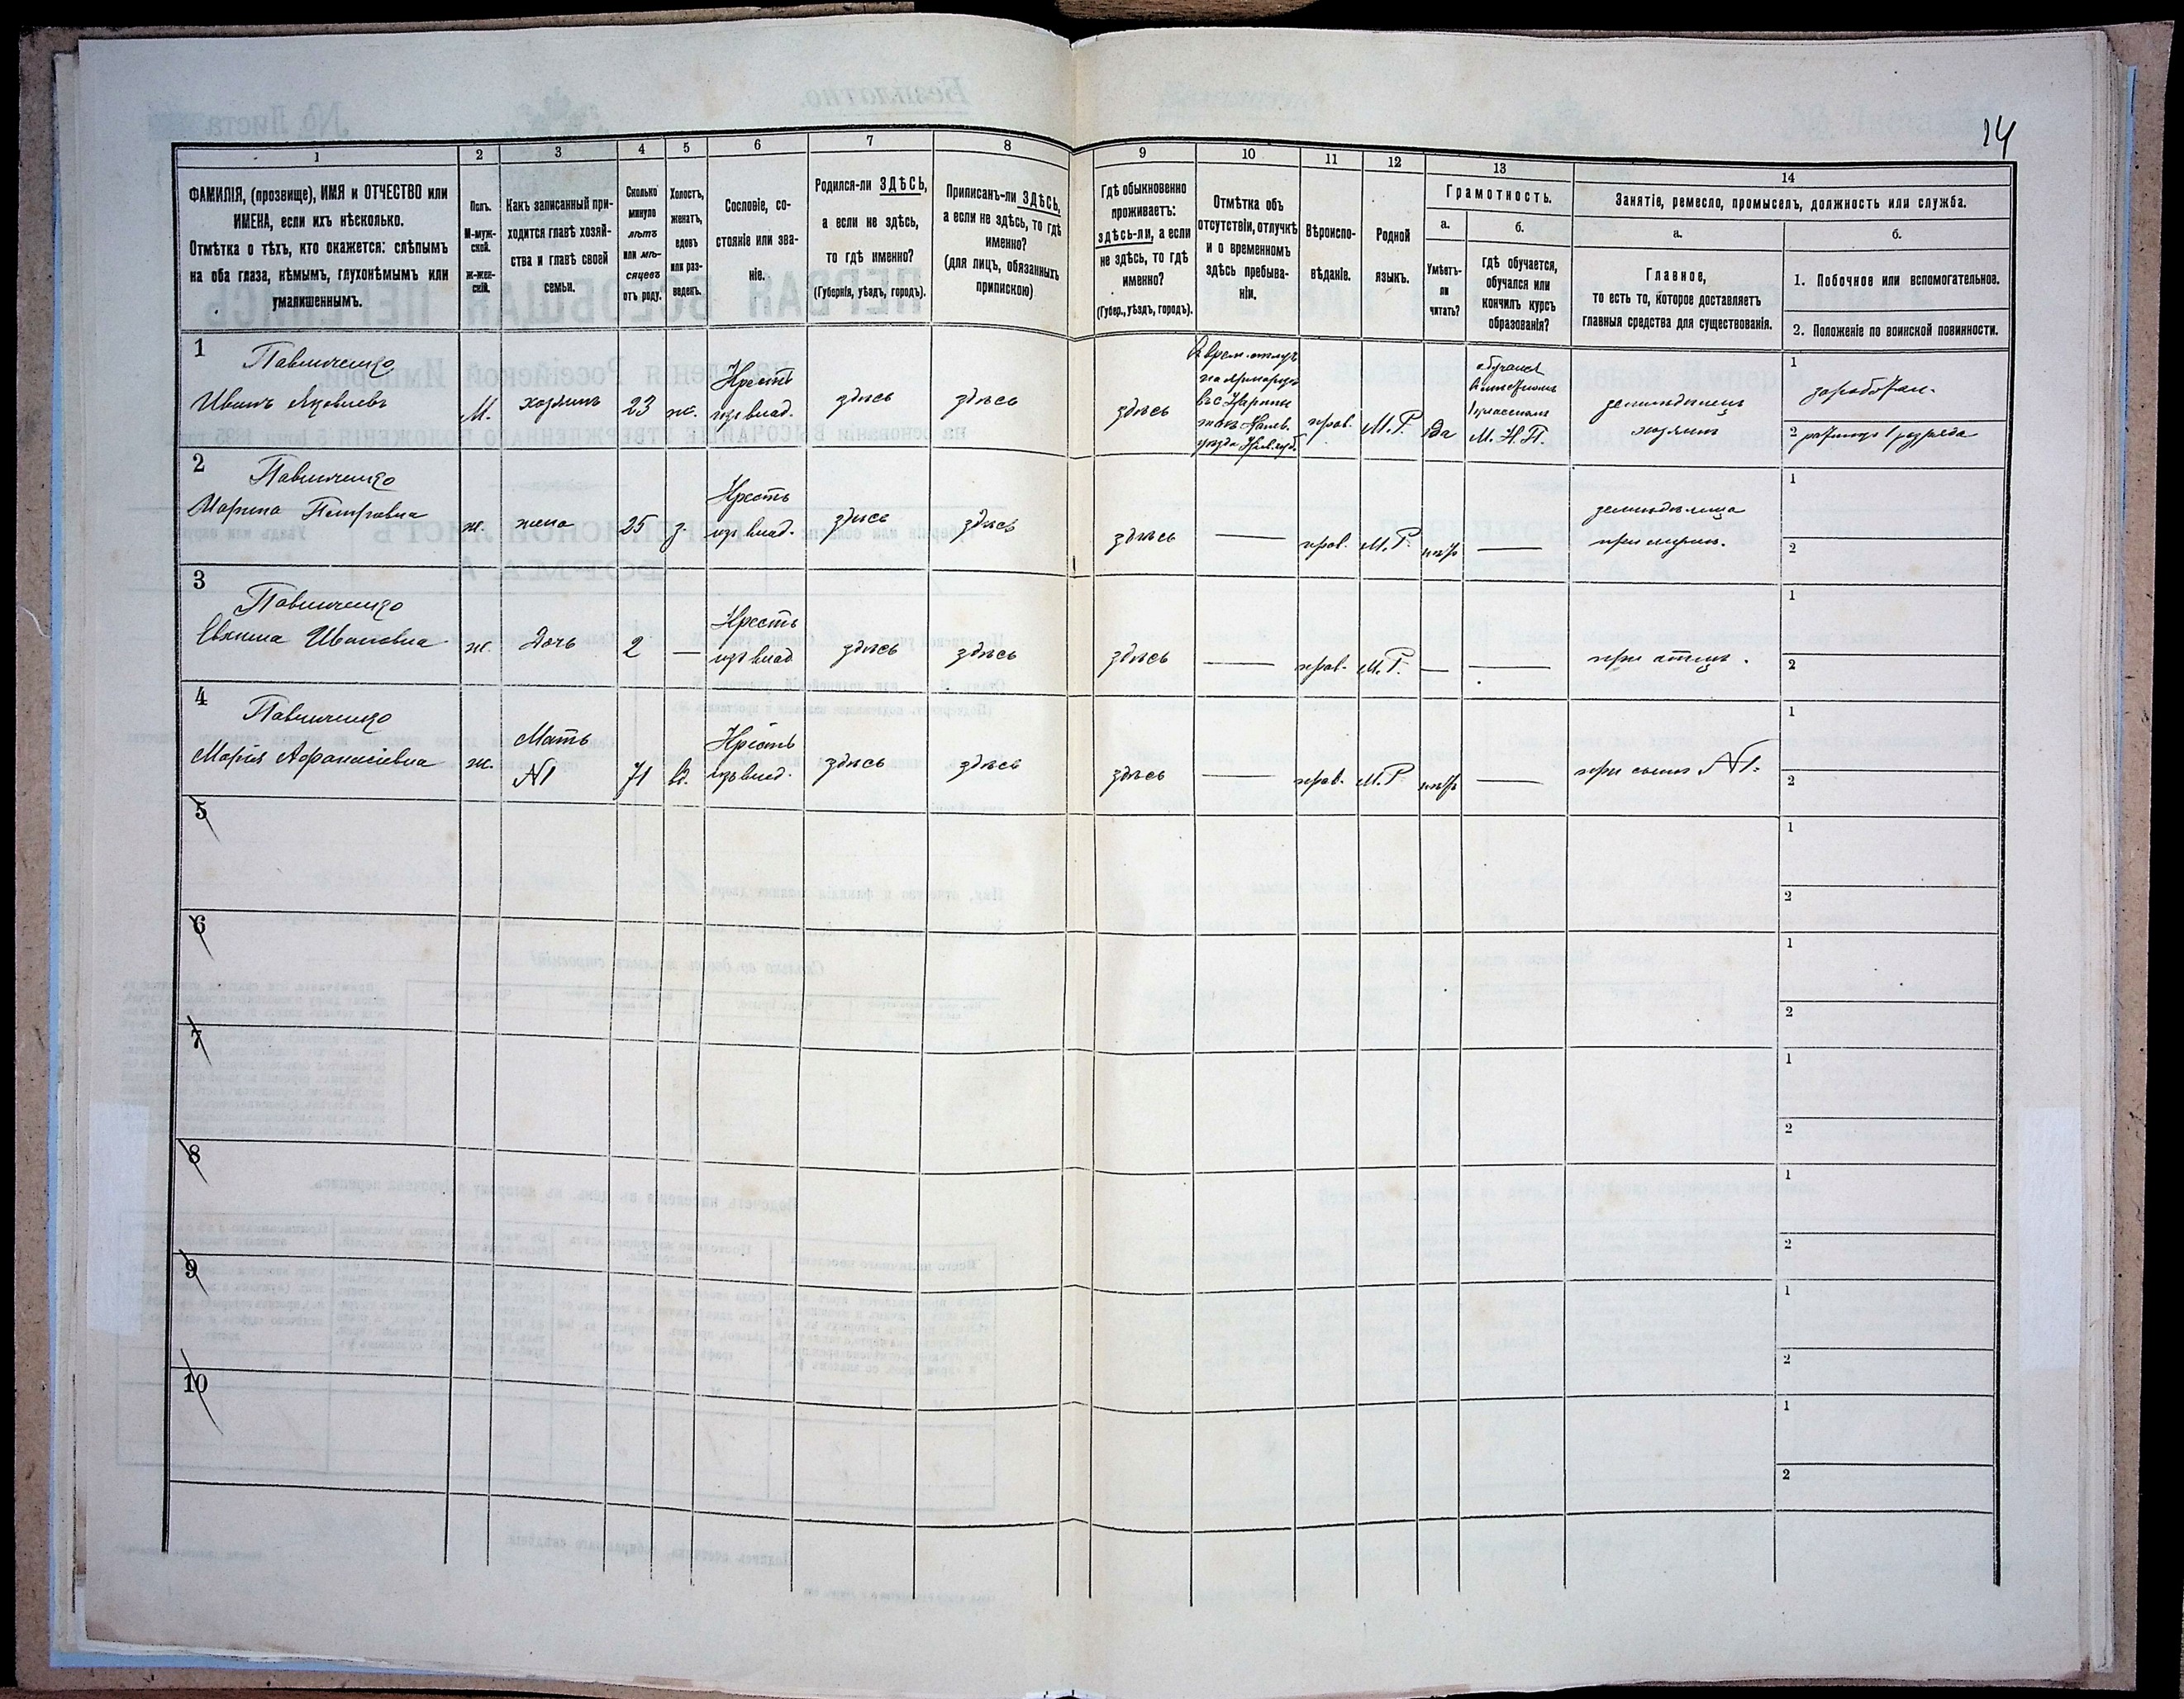 14
1 2 3 4 5 6 7 8 9 10 11 12 13 14
ФАМИЛІЯ, (прозвище), ИМЯ и ОТЧЕСТВО или
ИМЕНА, если ихъ нѣсколько.
Отмѣтка о тѣхъ, кто окажется: слѣпымъ
на оба глаза, нѣмымъ, глухонѣмымъ или
умалишеннымъ.
Полъ.
М-муж-
ской.
ж-жен-
скій.
Какъ записанный при-
ходится главѣ хозяй-
ства и главѣ своей
семьи.
Сколько
минуло
лѣтъ
или мѣ-
сяцевъ
отъ роду.
Холостъ,
женатъ,
вдовъ
или раз-
веденъ.
Сословіе, со-
стояніе или зва-
ніе.
Родился-ли ЗДѢСЬ,
а если не здѣсь,
то гдѣ именно?
(Губернія, уѣздъ, городъ).
Приписанъ-ли ЗДѢСЬ,
а если не здѣсь, то гдѣ
именно?
(для лицъ, обязанныхъ
припискою)
Гдѣ обыкновенно
проживаетъ:
здѣсь-ли, а если
не здѣсь, то гдѣ
именно?
(Губер., уѣздъ, городъ).
Отмѣтка объ
отсутствіи, отлучкѣ
и о временномъ
здѣсь пребыва-
ніи.
Вѣроиспо-
вѣданіе.
Родной
языкъ.
Грамотность.
а.
Умѣетъ-
ли
читать?
б.
Гдѣ обучается,
обучался или
кончилъ курсъ
образованія?
Занятіе, ремесло, промыселъ, должность или служба.
а.
Главное,
то есть то, которое доставляетъ
главныя средства для существованія.
б.
1. Побочное или вспомогательное.
2. Положеніе по воинской повинности.
1
Павличенко
Иванъ Яковлевъ
М.
хозяинъ
23
ж.
Крест.
изъ влад.
здѣсь
здѣсь
здѣсь
прав.
М.Р.
да
обучался
М. Н. П.
земледѣлецъ
хозяинъ
1
2 ратникъ 1 разряда
2
Павличенко
Марина Петровна
ж.
жена
25
з.
Крест.
изъ влад.
здѣсь
здѣсь
здѣсь
—
прав.
М.Р.
нѣтъ
—
1
2
3
Павличенко
Ивановна
ж.
Дочь
2
—
Крест.
изъ влад.
здѣсь
здѣсь
здѣсь
—
прав.
М.Р.
—
—
при отцѣ.
1
2
4
Павличенко
Марія Афанасіевна
ж.
Мать
№1
71
вд.
Крест.
изъ влад.
здѣсь
здѣсь
здѣсь
—
прав.
М.Р.
нѣтъ
—
при сынѣ №1.
1
2
5
1
2
6
1
2
7
1
2
8
1
2
9
1
2
10
1
2